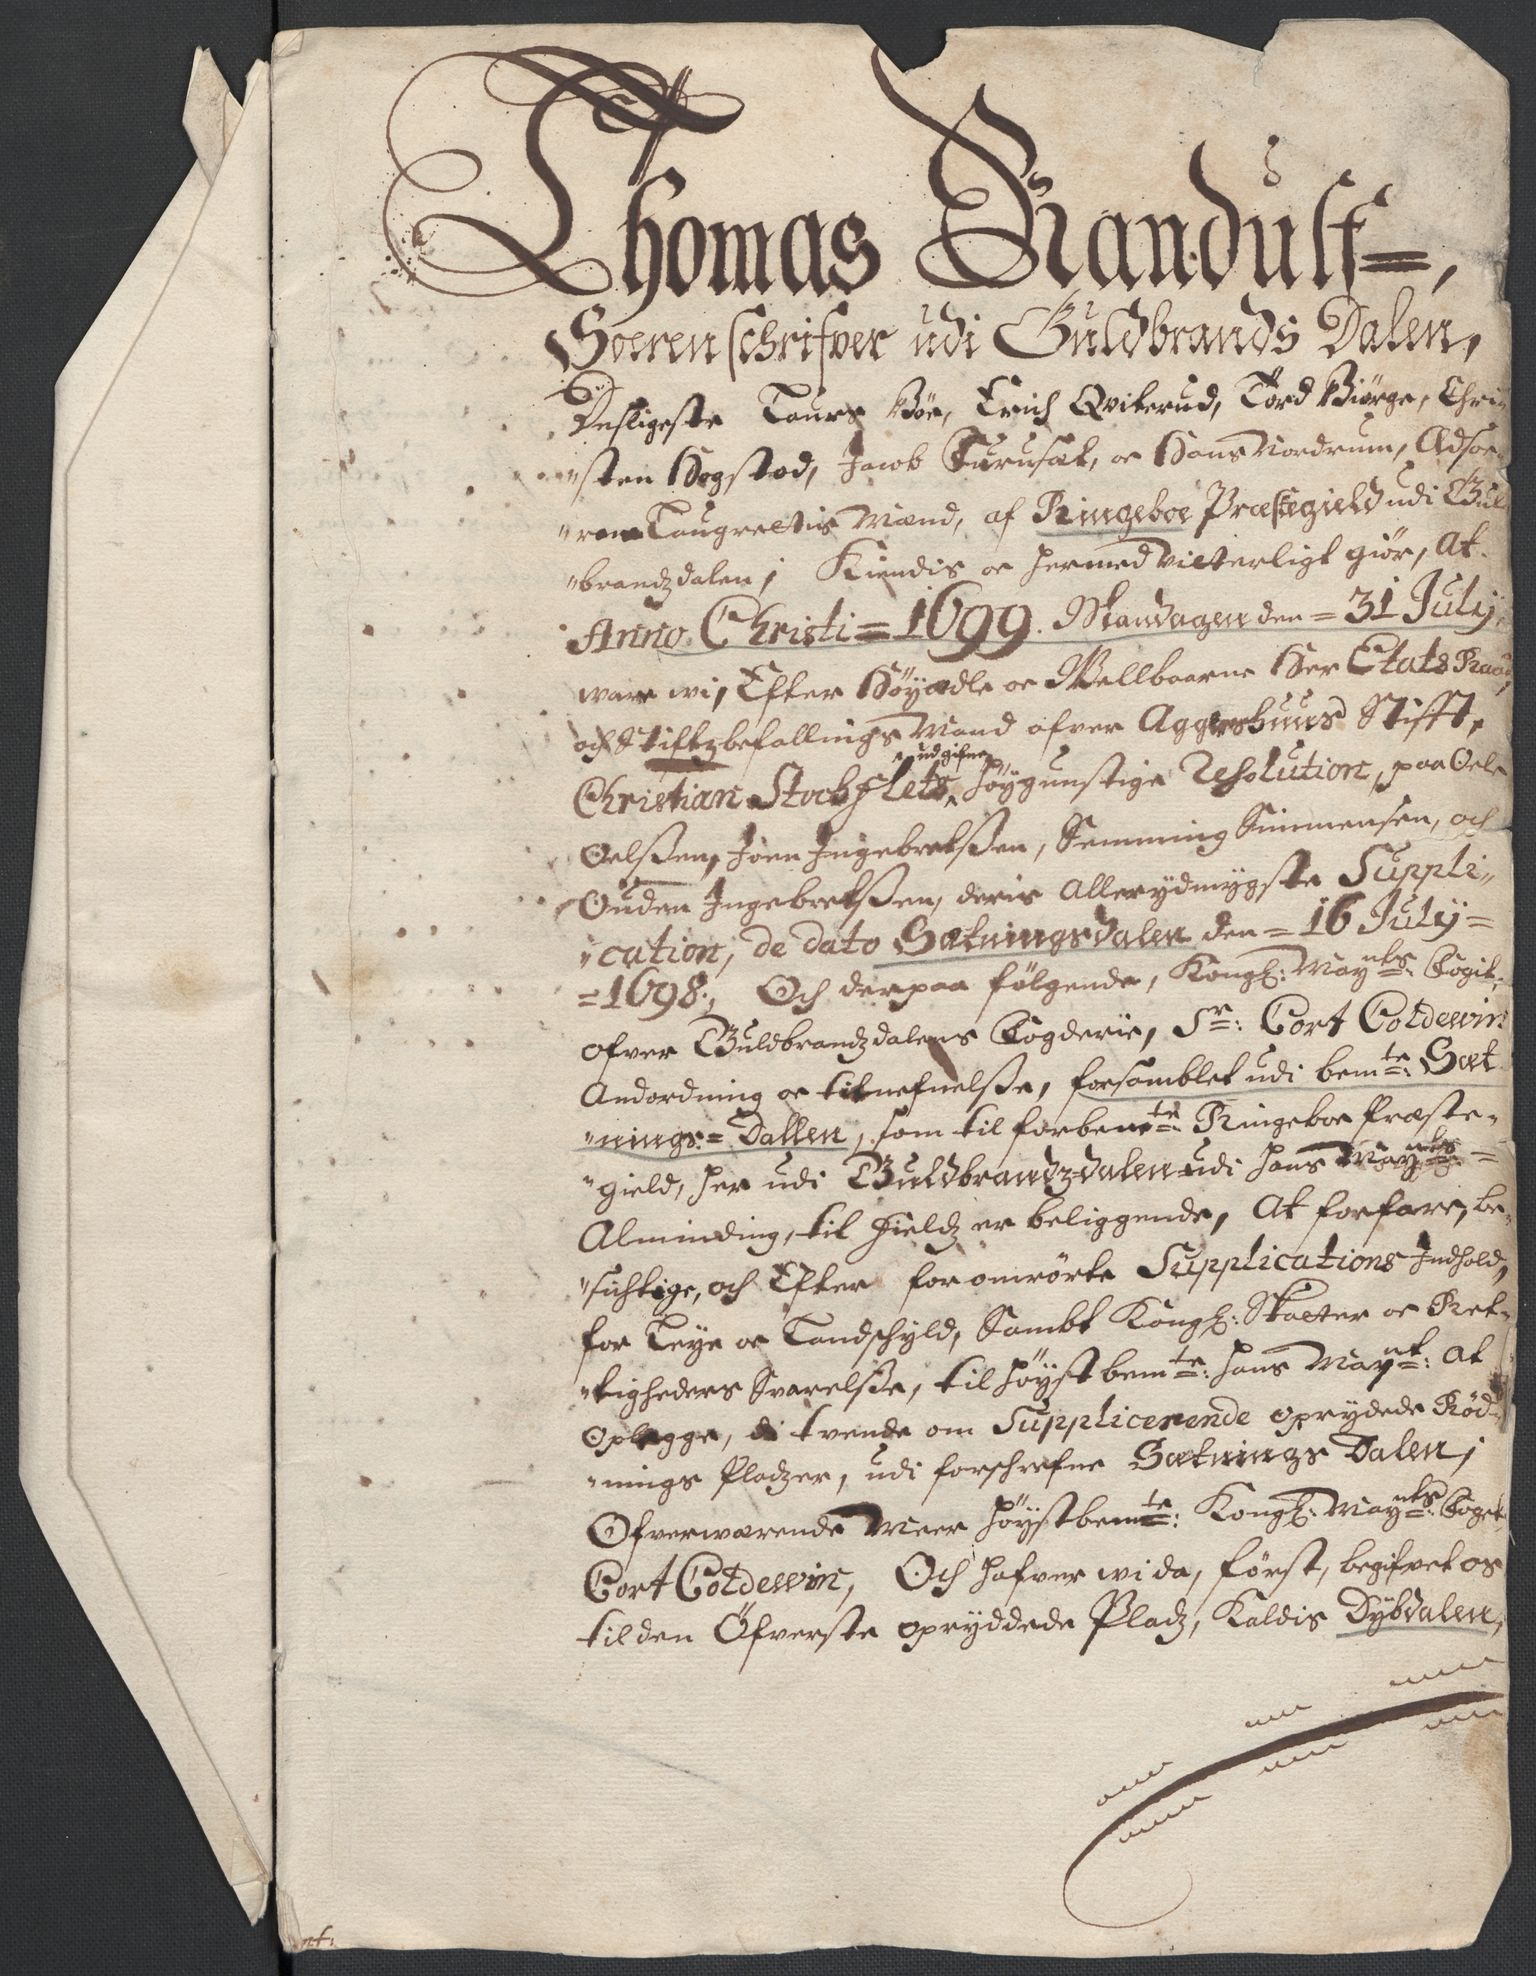 Thomas Randulf=,
Soerenschrifver udi Guldbrands Dalen,
Desligeste Laurs Böe, Erich Qviterud, Tord Biörge, Chri
"sten Hogstad, Jacob Furusæt, oc Hans Nordrum, Edsoe
"rne Laugrettis Mænd, af Ringeboe Præstegield udi Gul
"brandzdalen; Kiendis oc hermed vitterligt giör, At
Anno Christi = 1699. Mandagen den = 31 July
ware wi, Efter Höyædle oc Wellbaarne Her Etats Raad,
och Stiftzbefallings Mand ofver Aggershuus Stifft,
Christian Stochflets udgifne Höygunstige Resolution, paa Oele
Oelssen, Joen Ingebretssen, Semming Simmensen, och
Ouden Ingebretssen, deris Allerydmygste Suppli"
"cation, de dato Sætningsdalen den = 16 July =
= 1698., Och derpaa fölgende, Kongl: Mayts: Fogit,
ofver Guldbrandzdalens Fogderie, Sr: Cort Coldewin
Andordning oc tilnefnelsse, forsamblet udi bemte: Sæt
"nings = Dallen, som til forbemte: Ringeboe Præste"
"gield, her udi Guldbrandzdalen udi Hans Mayts: =
Alminding, til Fieldz er beliggende, At forfare, be"
"sichtige, och Efter foromrörte Supplications Indhold,
for Leye oc Landschyld, Sambt Kongl: Skatter oc Ret"
"tigheders Svarelsse, til Höystbemte: Hans Mayt: at
Oplegge, di tvende om Supplicerende oprydede Röd"
"nings Pladzer, udi forschrefne Sætnings Dalen;
Ofverwærende Meer Höystbemte: Kongl: Mayts: Foget
Cort Coldewin, Och hafver wi da, först, begifvet os
til den Öfverste opryddede Pladz, Kaldis Dybdalen,